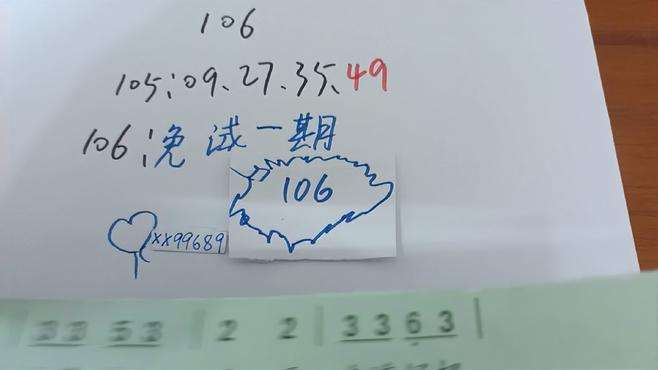 106
105:09.27.35.49
106:免试一期
106
xx99689
2 2 | 3 3 6 3 |